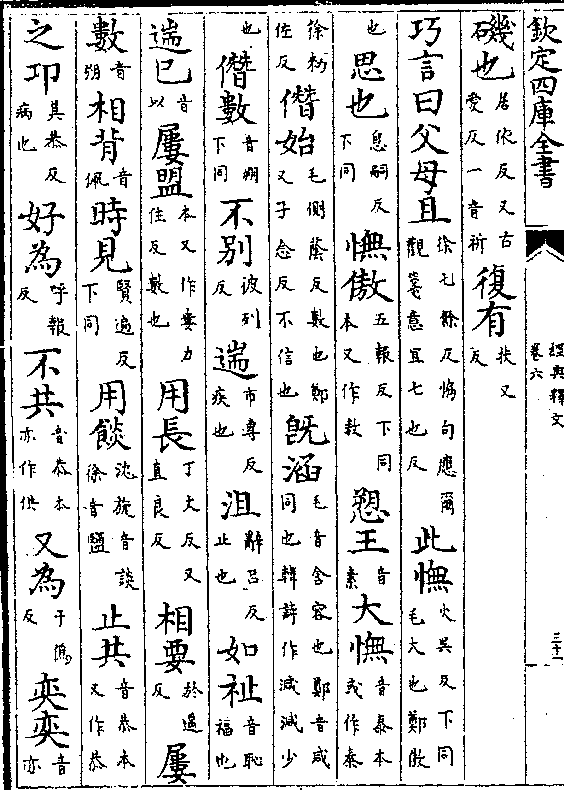 欽定四庫全書
經典釋文
卷六
三十一
磯也居依反又古愛反一音祈復有扶又反
巧言曰父母且徐七餘反協句應爾觀箋意宜七也反此憮火吳反下同毛大也鄭敖
也思也息嗣反下同憮傲五報反下同本又作敖愬王音素大憮音泰本或作泰
徐勑佐反僭始毛側蔭反數也鄭又子念反不信也既涵毛音含容也鄭音咸同也韓詩作減減少
也僭數音朔下同不别彼列反遄市專反疾也沮辭呂反止也如祉音恥福也
遄已音以屢盟本又作婁力住反數也用長丁丈反又直良反相要於遙反屢
數音朔相背音佩時見賢遍反下同用餤沈旋音談徐音鹽止共音恭本又作恭
之邛其恭反病也好為呼報反不共音恭本亦作供又為于僞反奕奕音亦